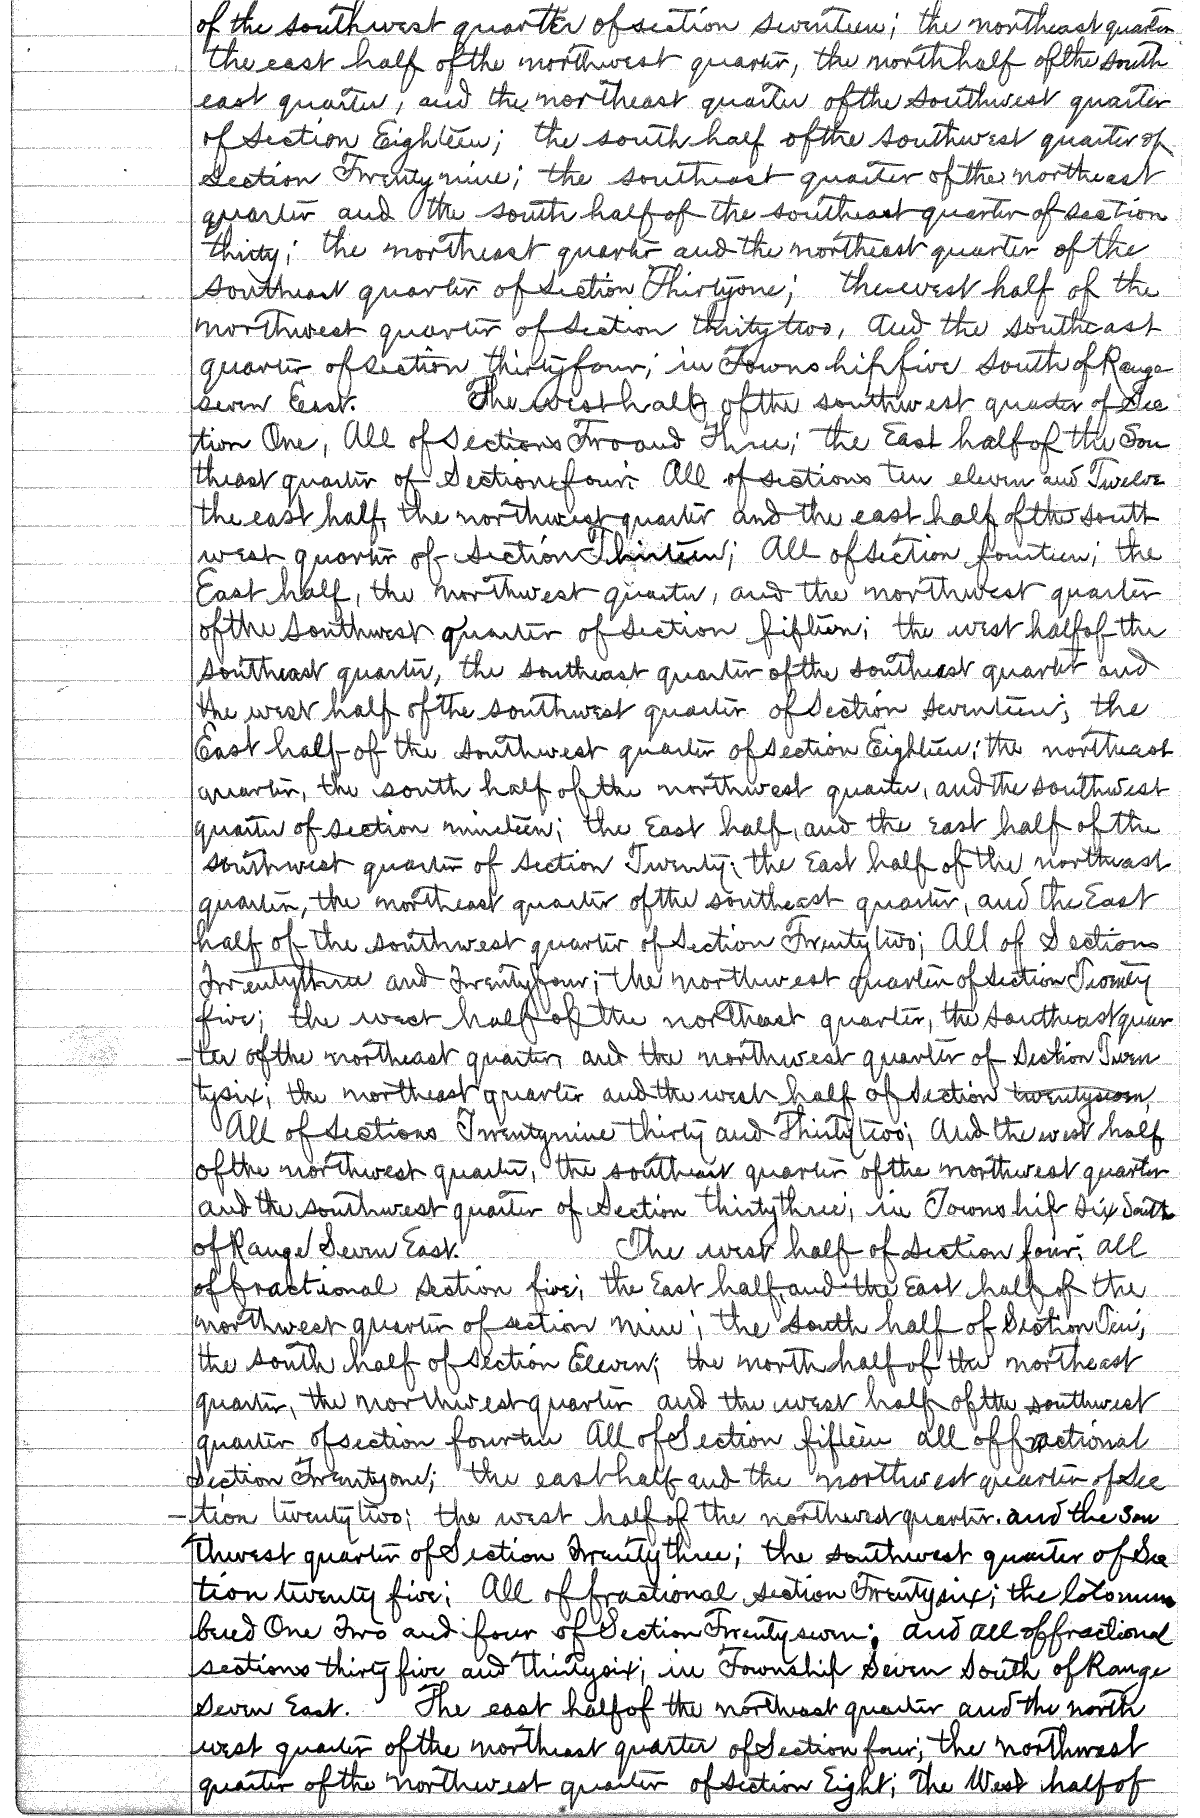 of the southwest quarter of section seventeen; the northeast quarter
the east half of the northwest quarter, the north half of the south
east quarter, and the northeast quarter of the southwest quarter
of Section Eighteen; the south half of the southwest quarter of
Section Twenty nine; the southeast quarter of the northeast
quarter and the south half of the southeast quarter of section
thirty; the northeast quarter and the northeast quarter of the
southeast quarter of Section Thirtyone; the west half of the
northwest quarter of Section thirty two, and the southeast
quarter of section thirtyfour; in Township five South of Range
seven East. The west half of the southwest quarter of Sec
tion One, All of Sections Two and Three; the East half of the Sou
theast quarter of Section four; All of sections ten eleven and Twelve
the east half, the northwest quarter and the east half of the south
west quarter of Section Thirteen; All of section fourteen; the
East half, the northwest quarter, and the northwest quarter
of the Southwest quarter of Section fifteen; the west half of the
southeast quarter, the southeast quarter of the southeast quarter and
the west half of the southwest quarter of Section seventeen; the
East half of the southwest quarter of section Eighteen; the northeast
quarter, the south half of the northwest quarter, and the southwest
quarter of section nineteen; the East half, and the east half of the
southwest quarter of section Twenty; the East half of the northeast
quarter, the northeast quarter of the southeast quarter, and the East
half of the southwest quarter of Section Twentytwo; All of Sections
Twentythree and Twentyfour; the northwest quarter of Section Twenty
five; the west half of the northeast quarter, the southeast quar
ter of the northeast quarter and the northwest quarter of Section Twen
tysix; the northeast quarter and the west half of Section twentyseven,
All of Sections Twentynine thirty and Thirtytwo; And the west half
of the northwest quarter, the southeast quarter of the northwest quarter
and the southwest quarter of Section thirtythree; in Township six South
of Range Seven East. The west half of section four; all
of fractional section five; the East half, and the East half of the
northwest quarter of section nine; the South half of Section Ten;
the south half of Section Eleven; the north half of the northeast
quarter, the northwest quarter and the west half of the southwest
quarter of section fourteen All of Section fifteen all of fractional
Section Twentyone; the east half and the northwest quarter of Sec
tion twenty two; the west half of the northwest quarter. and the Sou
thwest quarter of Section Twenty three; the southwest quarter of Sec
tion twenty five; All of fractional section Twentysix; the lots num
bered One Two and four of Section Twentyseven; and all of fractional
sections thirty five and thirtysix; in Township Seven South of Range
Seven East. The east half of the northeast quarter and the north
west quarter of the northeast quarter of Section four; the northwest
quarter of the northwest quarter of Section Eight; The West half of